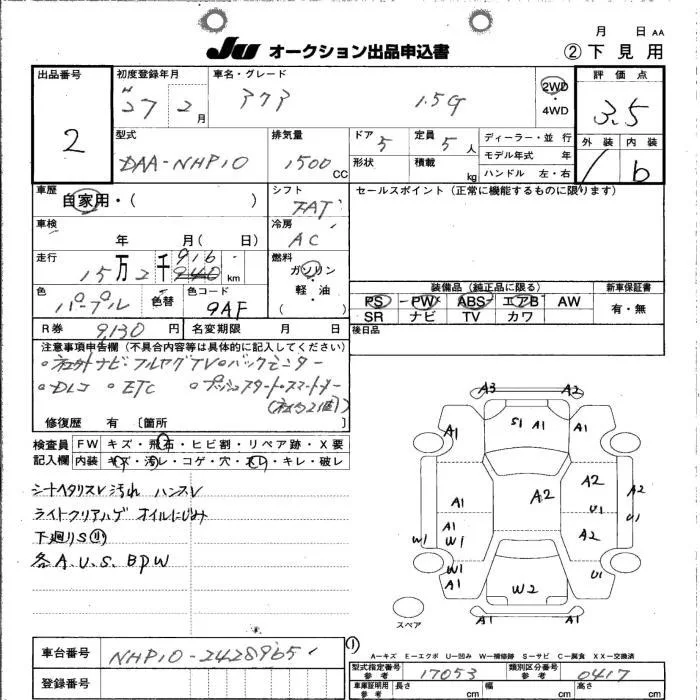 月 日 AA
JU オークション出品申込書 ②下見用
出品番号 初度登録年月 車名・グレード 評価点
2 H27 2月 アクア 1.5G 2WD 4WD 3.5
型式 排気量 ドア 定員 ディーラー・並行 外装 内装
DAA-NHP10 1500CC 5 5人 モデル年式 年
形状 積載 kg ハンドル 左・右 b
車歴 シフト セールスポイント (正常に機能するものに限ります)
自家用・( ) FAT
車検 冷房
年 月( 日) AC
走行 燃料
15万2千916 km ガソリン
軽・油
( )
色 色替 色コード 装備品 (純正品に限る) 新車保証書
パープル 9AF PS PW ABS エアB AW 有・無
SR ナビ TV カワ
R券 9,130円 名変期限 月 日 後日品
注意事項申告欄 (不具合内容等は具体的に記入してください)
○社外ナビ・フルセグTV○バックモニター
○DLコ ○ETC ○プッシュスタート・スマートキー
修復歴 有 〔箇所 〕
検査員 FW キズ・飛石・ヒビ割・リペア跡・X要
記入欄 内装 キズ・汚レ・コゲ・穴・スレ・キレ・破レ
シートヘタリスレ汚れ ハンスレ
ライトクリアハゲ オイルにじみ
下廻りS
各A.U.S.BPW
A3 A2
A1 S1 A1 A1
A2 A2
A1 U1
A1 U1
W1 W1
W1 U1
A1 W2
A1 A2
スペア
車台番号 NHP10-2428965
登録番号
①
A-キズ E-エクボ U-凹み W-補修跡 S-サビ C-腐食 XX-交換済
型式指定番号 参考 17053 類別区分番号 参考 0417
車庫証明用 参考 長さ cm 幅 cm 高さ cm